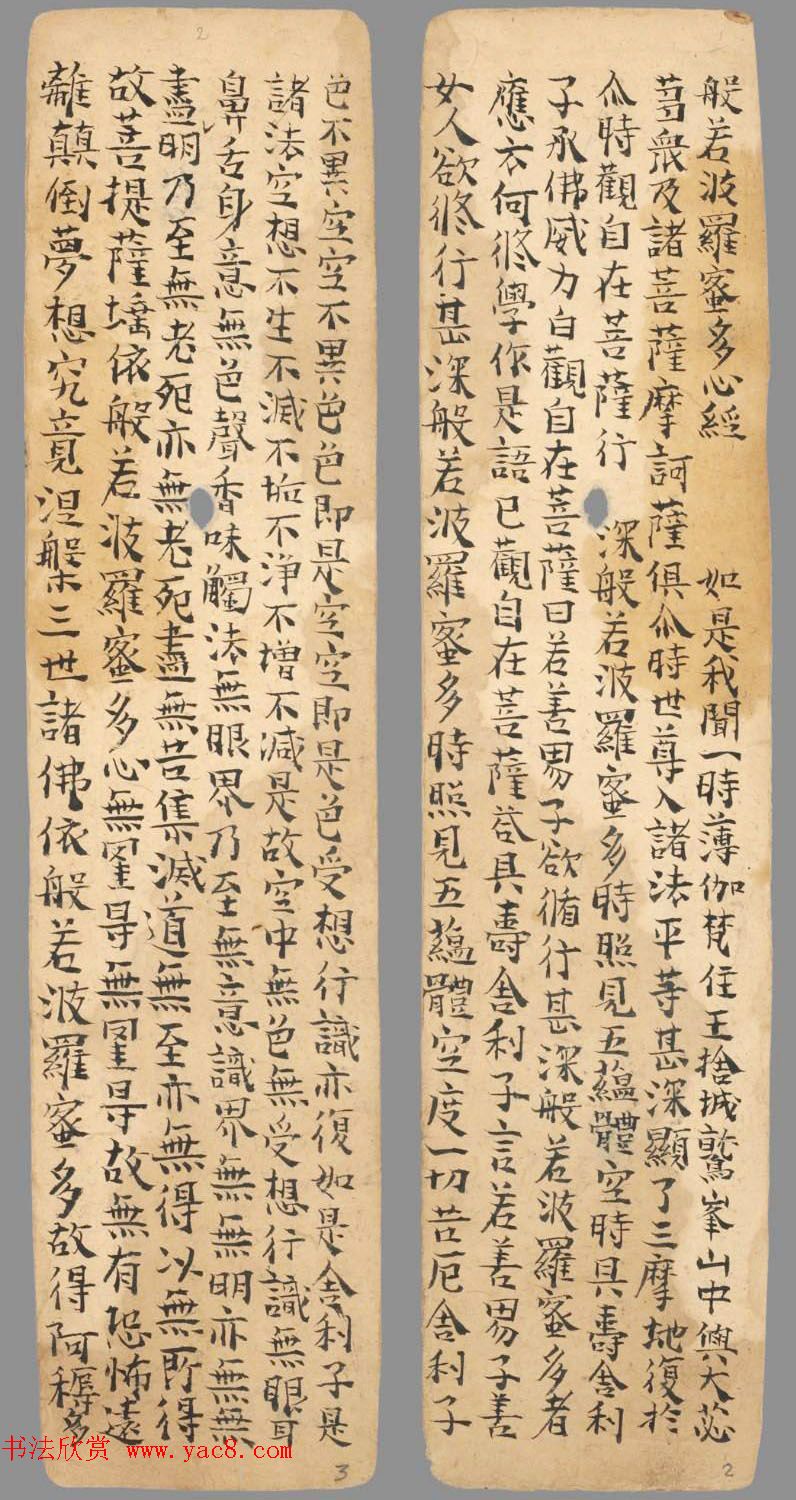 般若波羅蜜多心經 如是我聞一時薄伽梵住王捨城鷲峯山中與大苾
蒭衆及諸菩薩摩訶薩俱尒時世尊入諸法平等甚深顯了三摩地復於
尒時觀自在菩薩行 深般若波羅蜜多時照見五蘊體空時具壽舍利
子承佛威力白觀自在菩薩曰若善男子欲脩行甚深般若波羅蜜多者
應云何修學作是語已觀自在菩薩荅具壽舍利子言若善男子善
女人欲修行甚深般若波羅蜜多時照見五蘊體空度一切苦厄舍利子
2
色不異空空不異色色即是空空即是色受想行識亦復如是舍利子是
諸法空想不生不滅不垢不淨不增不減是故空中無色無受想行識無眼耳
鼻舌身意無色聲香味觸法無眼界乃至無意識界無無明亦無無
盡明乃至無老死亦無老死盡無苦集滅道無至亦無得以無所得
故菩提薩埵依般若波羅蜜多心無罣㝵無罣㝵故無有恐怖遠
離顛倒夢想究竟涅槃三世諸佛依般若波羅蜜多故得阿耨多
2
3
书法欣赏 www.yac8.com